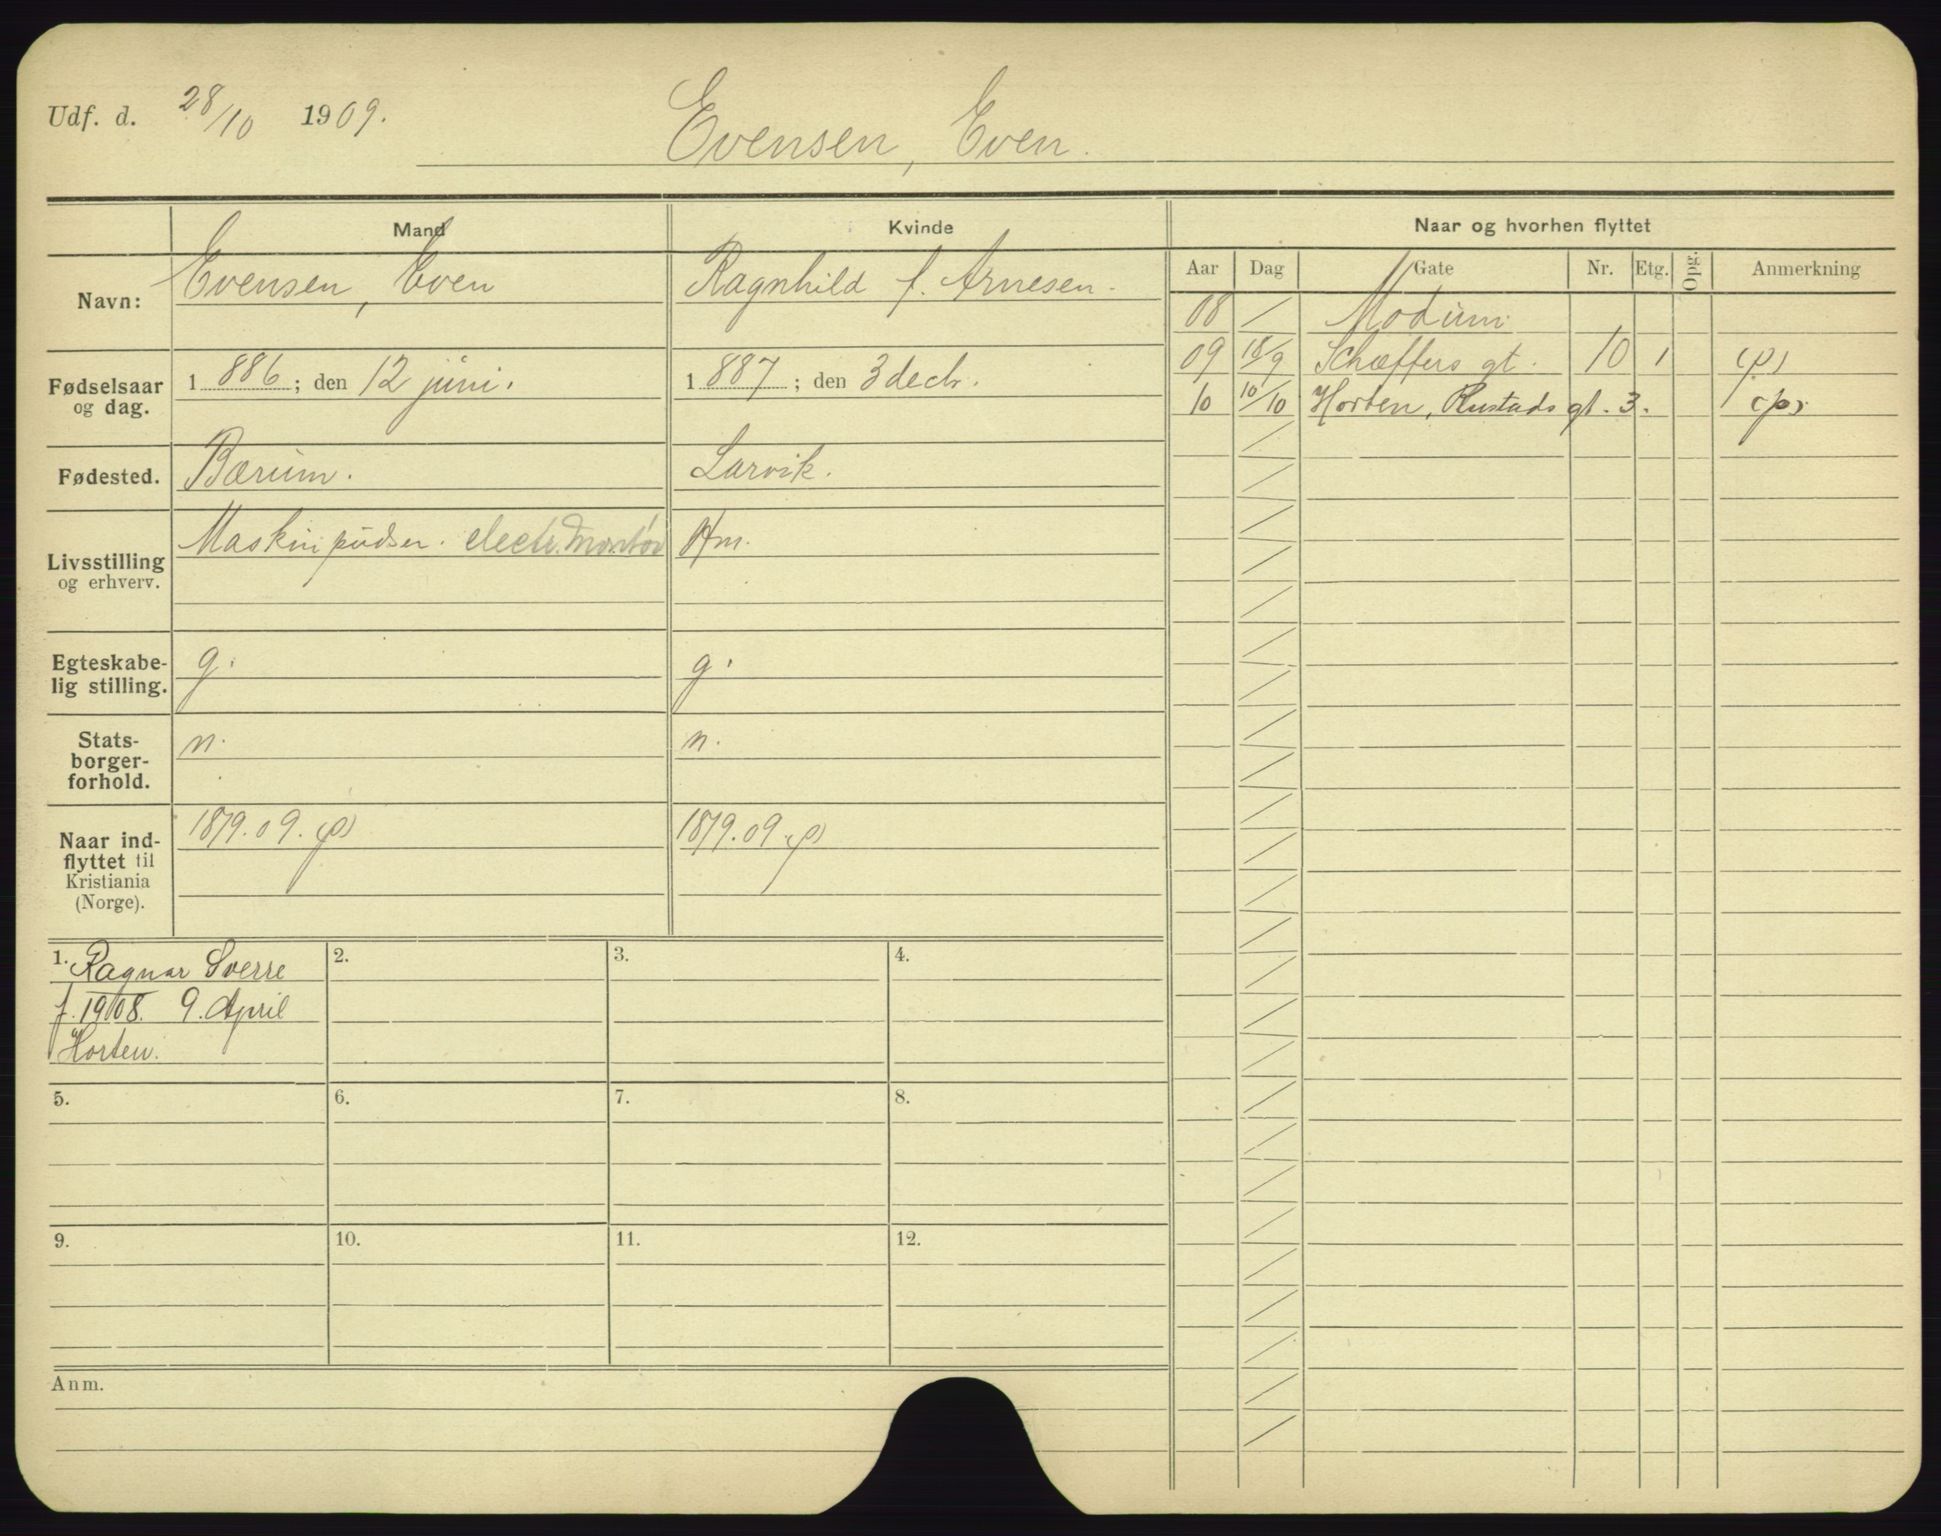 Udf. d. 28/10 1909.
Evensen, Even.
Mand
Kvinde
Naar og hvorhen flyttet
Navn:
Evensen, Even
Ragnhild f. Arnesen.
Fødselsaar og dag.
1886; den 12 juni.
1887; den 3 decbr.
Fødested.
Bærum.
Larvik.
Livsstilling og erhverv.
Maskinpudser. electr. Montør
Hm.
Egteskabe-
lig stilling.
g.
g.
Stats-
borger-
forhold.
n.
n.
Naar ind-
flyttet til
Kristiania
(Norge).
18/9.09. (p)
18/9.09. (p)
Aar Dag Gate Nr. Etg. Opg. Anmerkning
08 / Modum
09 18/9 Schæffers gt. 10 1 (p)
10 10/10 Horten, Rustads gt. 3. (p)
1. Ragnar Sverre
f. 1908. 9. April
Horten.
2.
3.
4.
5.
6.
7.
8.
9.
10.
11.
12.
Anm.